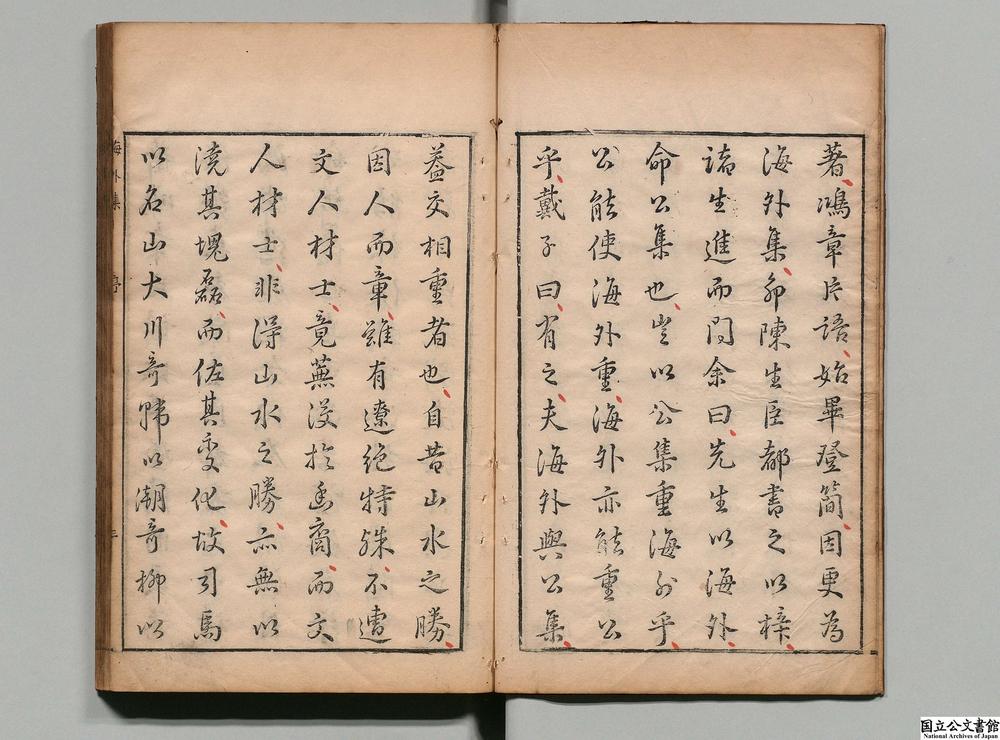 著鴻章片語始畢登簡因更為
海外集卯陳生臣都書之以梓
諸生進而問余曰先生以海外
命公集也豈以公集重海外乎
公能使海外重海外亦能重公
乎戴子曰有之夫海外與公集
葢交相重者也自昔山水之勝
因人而章雖有遼絕特殊不遭
文人材士竟蕪沒於幽裔而文
人材士非得山水之勝亦無以
澆其塊磊而佐其变化故司馬
以名山大川竒韓以潮竒柳以
海外集
序
三
国立公文書館
National Archives of Japan